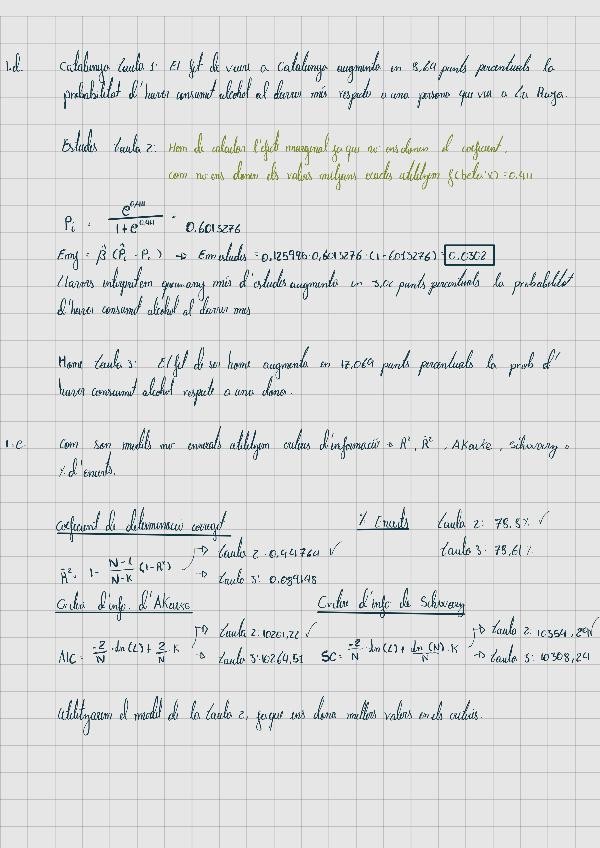 1.d. Catalunya taula 1: El fet de viure a Catalunya augmenta en 3,64 punts percentuals la
probabilitat d'haver consumit alcohol al darrer mes respecte a una persona que viu a La Rioja.
Estudis taula 2: Hem de calcular l'efecte marginal ja que no ens donen el coeficient,
com no ens donen els valors mitjans exactes utilitzem f(beta'x) = 0.411
Pi = e^0.411 / 1+e^0.411 = 0.6013276
Emj = β̂ (P̂i · Pi) → Em estudis = 0.125990·0,6013276·(1-6013276) = 0.0302
Llavors interpretem que un any més d'estudis augmenta en 3,02 punts percentuals la probabilitat
d'haver consumit alcohol al darrer mes
Home taula 3: El fet de ser home augmenta en 17,069 punts percentuals la prob d'
haver consumit alcohol respecte a una dona.
1.e. Com son models no enuats utilitzem criteris d'informació → R², R̄², Akaike, Schwarz o
% d'encerts.
Coeficient de determinacio corregit
% Encerts taula 2: 78.8% ✓
taula 3: 78,61%
R̄² = 1 - N-1 / N-K (1-R²) → taula 2: 0,441764 ✓
→ taula 3:
Criteri d'info. d'Akaike
Criteri d'info de Schwarz
AIC = -2/N · ln(L) + 2/N · K → taula 2: 10201,22 ✓
→ taula 3: 10264,51
SC = -2/N · ln(L) + ln(N)/N · K → taula 2: 10354 ✓
→ taula 3: 10308,24
Utilitzarem el model de la taula 2, ja que ens dona millors valors en els criteris.